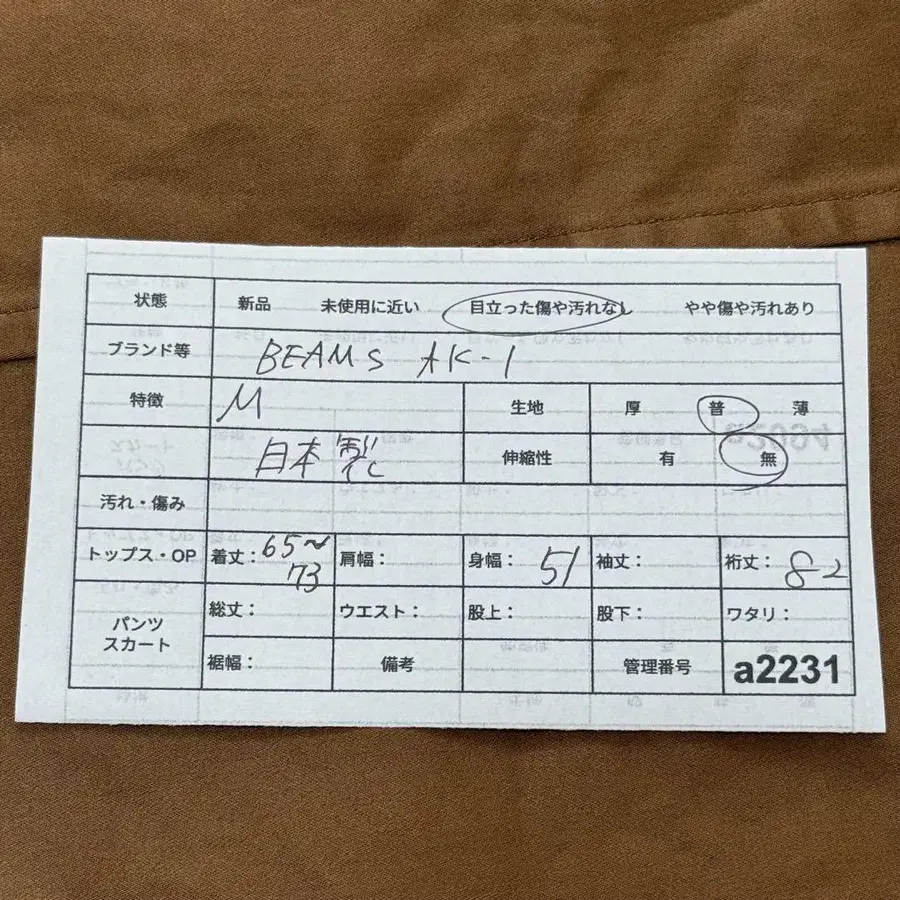 状態 新品 未使用に近い 目立った傷や汚れなし やや傷や汚れあり
ブランド等 BEAMS AK-1
特徴 M 生地 厚 普 薄
日本製 伸縮性 有 無
汚れ・傷み
トップス・OP 着丈:65〜73 肩幅: 身幅:51 袖丈: 裄丈:82
パンツ スカート 総丈: ウエスト: 股上: 股下: ワタリ:
裾幅: 備考 管理番号 a2231